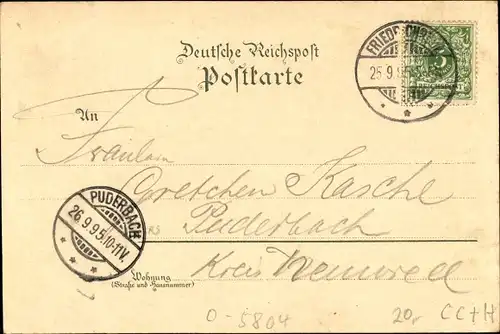 Deutsche Reichspost
Postkarte
FRIEDRICHS
25.9.95
5
An
Fräulein
Gretchen Kasche
PUDERBACH
26.9.95.10-11V.
Puderbach
Kreis Neuwied
Wohnung
(Straße und Hausnummer)
0-5804
20,-
CC+H